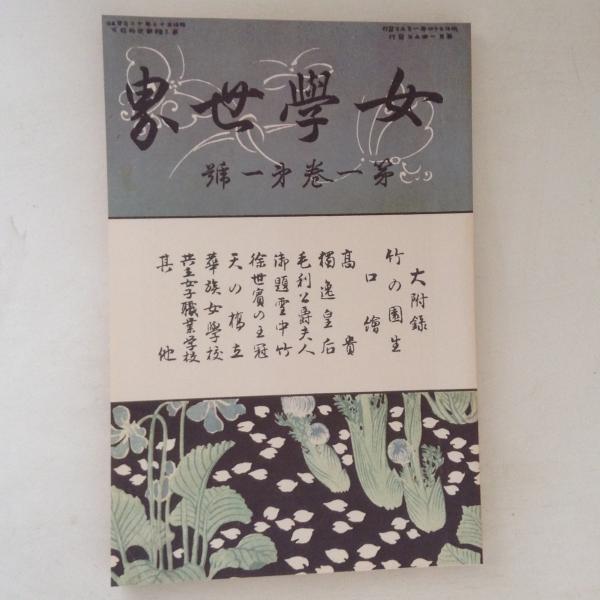 女學世界
第一卷第一號
大附錄
竹の園生
口繪
高貴
獨逸皇后
毛利公爵夫人
御題雪中竹
徐世賓の王冠
天の橋立
華族女學校
共立女子職業学校
其他